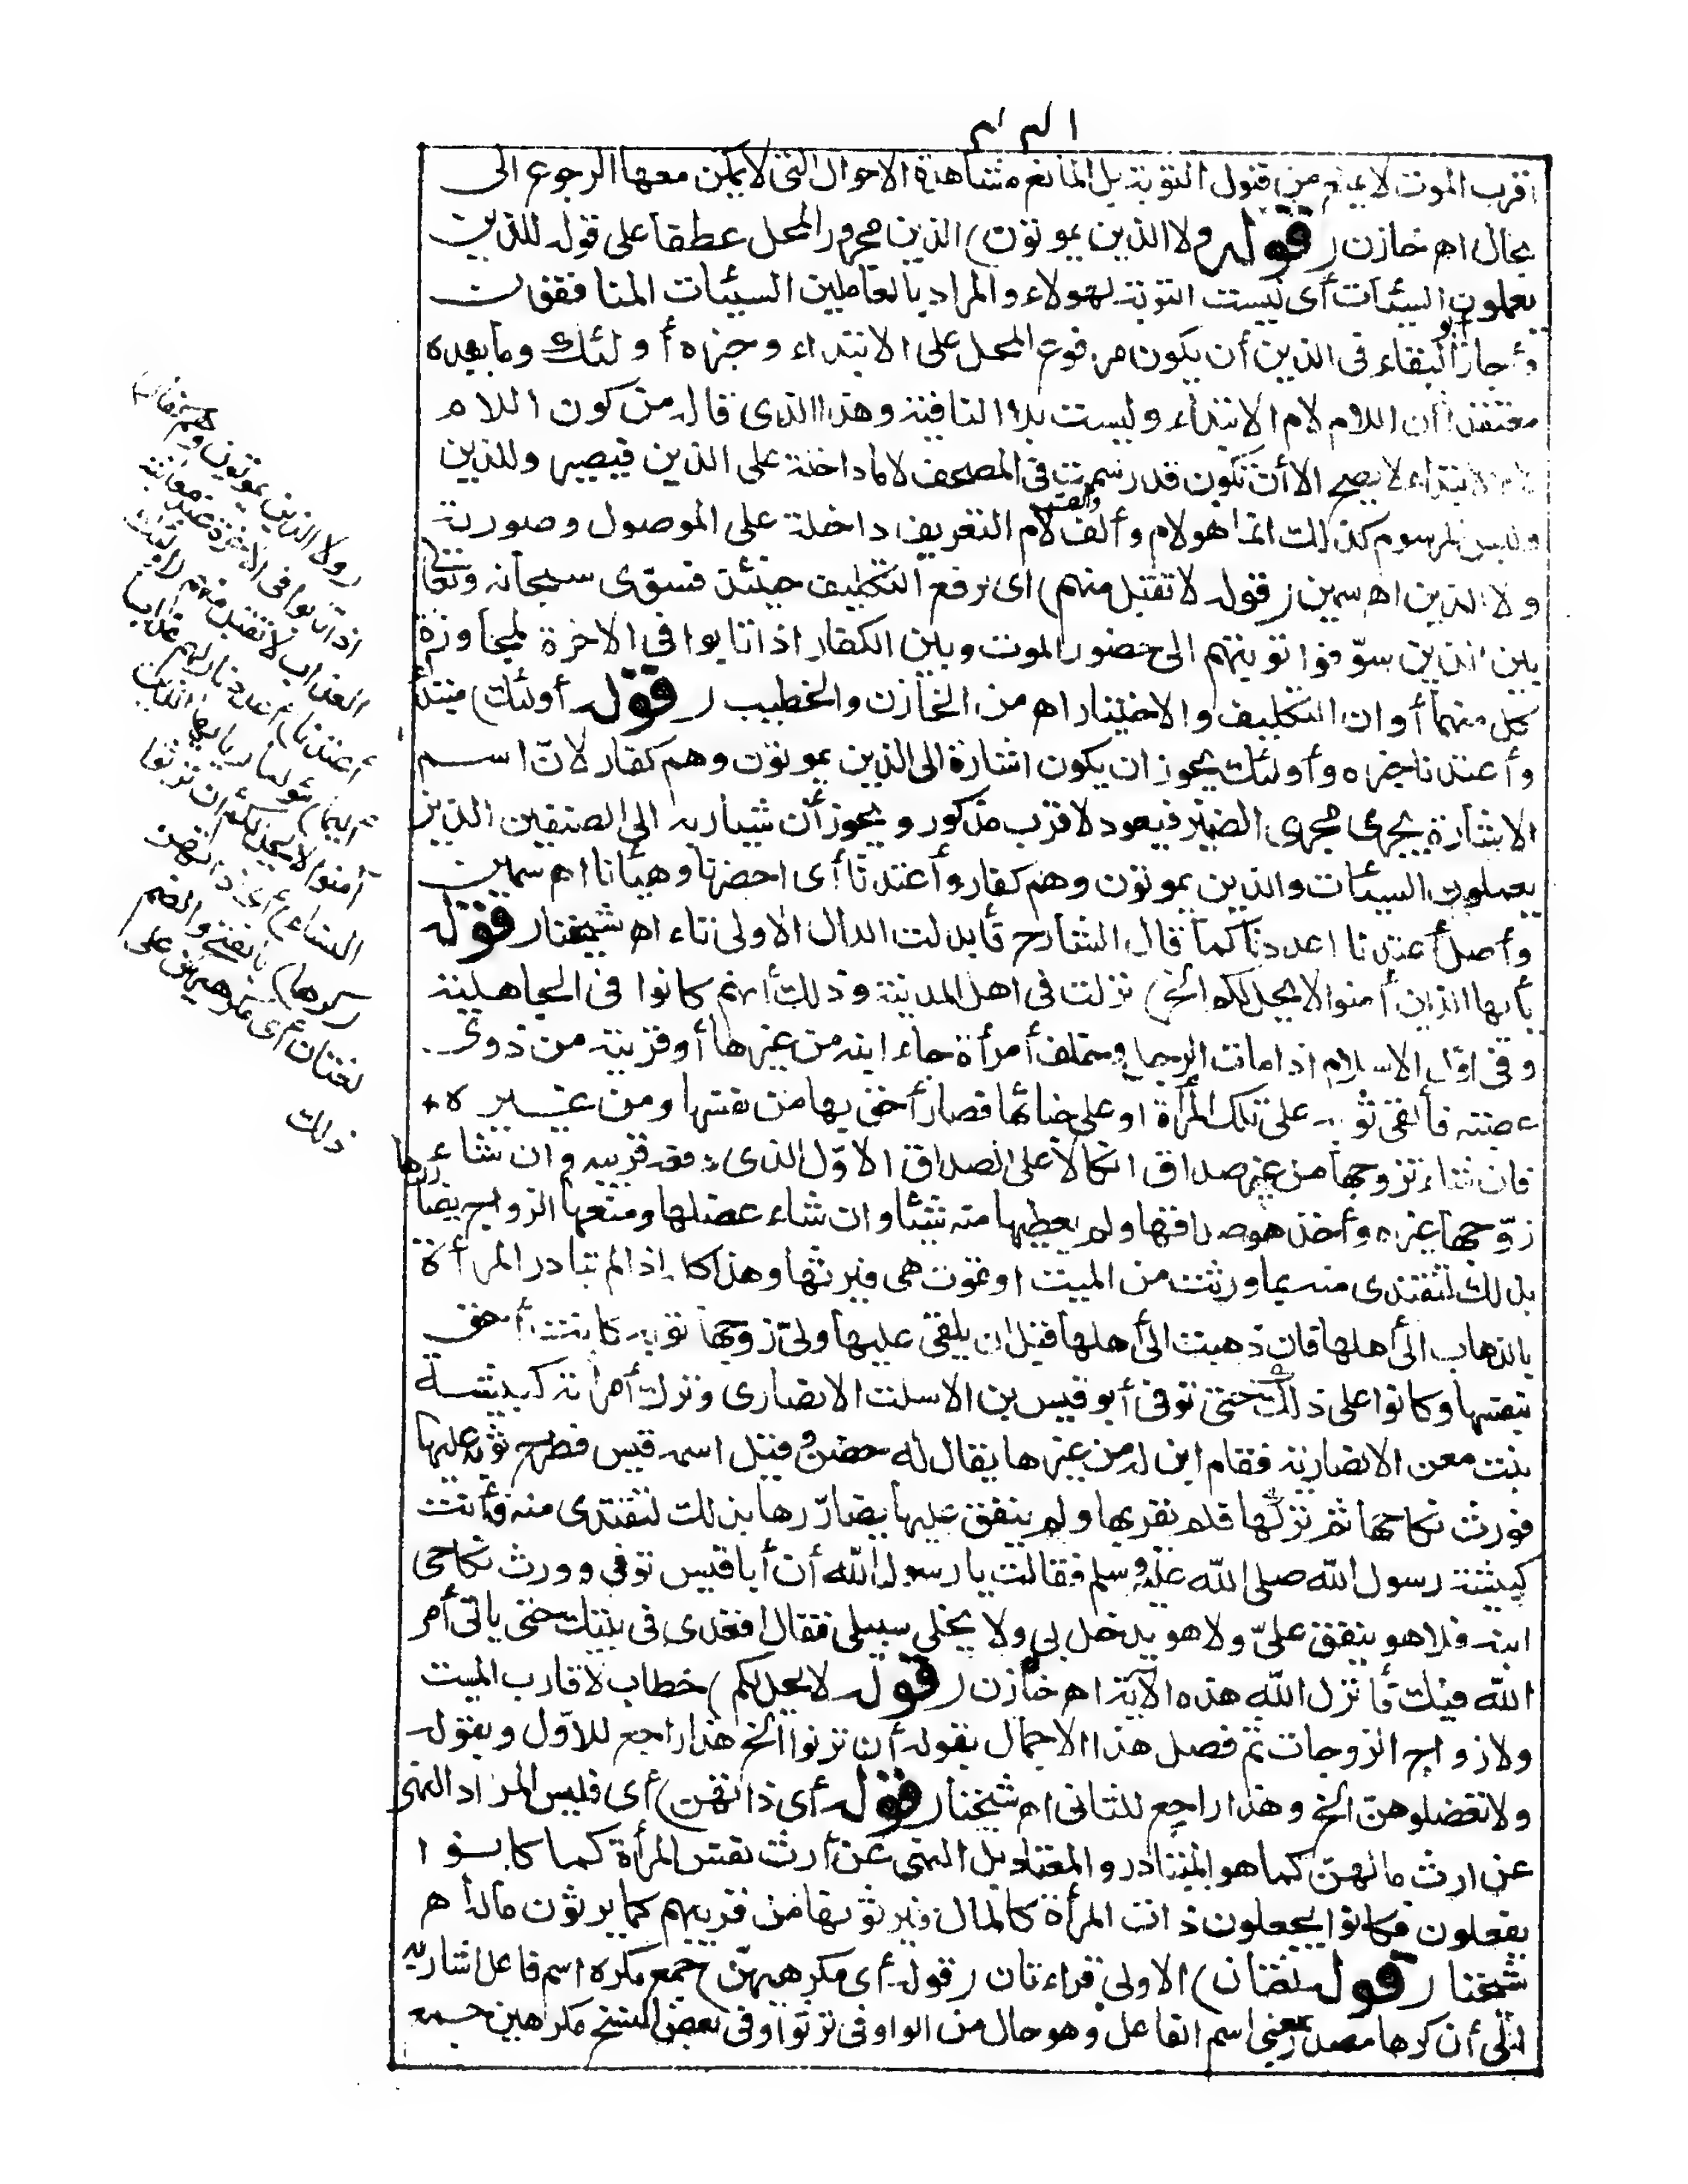 قرب الموت لا يمنع من قبول التوبة بل المانع مشاهدة الاحوال التى لا يمكن معها الرجوع الى
بحال اه خازن (قوله ولا الذين يموتون) الذين مجرور المحل عطفا على قوله للذين
يعملون السيئات أى ليست التوبة لهولاء والمراد بالعاملين السيئات المنافقون
وأجاز أبو البقاء فى الذين أن يكون مرفوع المحل على الابتداء وخبره أولئك وما بعده
معتقدا أن اللام لام الابتداء وليست بلا النافية وهذا الذى قاله من كون اللام
لام الابتداء لا يصح الا أن تكون قد رسمت فى المصحف لاما داخلة على الذين فيصير وللذين
وليس المرسوم كذلك انما هو لام وألف وألف لام التعريف داخلة على الموصول وصورته
ولا الذين اه سمين (قوله لا تقبل منهم) اى لرفع التكليف حينئذ فسوى سبحانه وتعالى
بين الذين سوّفوا توبتهم الى حضور الموت وبين الكفار اذا تابوا فى الاخرة لمجاوزة
كل منهما أوان التكليف والاختيار اه من الخازن والخطيب (قوله أولئك) مبتدأ
وأعتدنا خبره وأولئك يجوز ان يكون اشارة الى الذين يموتون وهم كفار لانّ اسم
الاشارة يجرى مجرى الضمير فيعود لاقرب مذكور ويجوز أن يشار به الى الصنفين الذين
يعملون السيئات والذين يموتون وهم كفار وأعتدنا أى احضرنا وهيأنا اه سمين
وأصل أعتدنا اعددنا كما قال الشارح فأبدلت الدال الاولى تاء اه شيخنا (قوله
يأيها الذين أمنوا لا يحل لكم الخ) نزلت فى اهل المدينة وذلك أنهم كانوا فى الجاهلية
وفى اوّل الاسلام اذا مات الرجل وخلف أمرأة جاء ابنه من غيرها أو قريبه من ذوى
عصبته فألقى ثوبه على تلك المرأة او على خبائها فصار أحق بها من نفسها ومن غيره
فان شاء تزوجها من غير صداق اتكالا على الصداق الاوّل الذى دفعه قريبه وان شاء
زوّجها غيره وأخذ هو صداقها ولم يعطها منه شيئا وان شاء عضلها ومنعها الزواج يضارّها
بذلك لتفتدى منه بما ورثت من الميت او تموت هى فيرثها وهذا كله اذا لم تبادر المرأة
بالذهاب الى أهلها فان ذهبت الى أهلها قبل ان يلقى عليها ولىّ زوجها ثوبه كانت أحق
بنفسها وكانوا على ذلك حتى توفى أبو قيس بن الاسلت الانصارى وترك أمرأته كبيشة
بنت معن الانصارية فقام ابن له من غيرها يقال له حصن وقيل اسمه قيس فطرح ثوبه عليها
فورث نكاحها ثم تركها فلم يقربها ولم ينفق عليها يضارّها بذلك لتفتدى منه فأتت
كبيشة رسول الله صلى الله عليه وسلم فقالت يا رسول الله أن أبا قيس توفى وورث نكاحى
ابنه فلا هو ينفق علىّ ولا هو يدخل بى ولا يخلى سبيلى فقال اقعدى فى بيتك حتى ياتى أمر
الله فيك فأنزل الله هذه الآية اه خازن (قوله لا يحل لكم) خطاب لاقارب الميت
ولازواج الزوجات ثم فصل هذا الاجمال بقوله أن ترثوا الخ هذا راجع للاوّل وبقوله
ولا تعضلوهنّ الخ وهذا راجع للثانى اه شيخنا (قوله أى ذاتهن) أى فليس المراد النهى
عن ارث مالهنّ كما هو المتبادر والمعتاد بل النهى عن أرث نفس المرأة كما كانوا
يفعلون فكانوا يجعلون ذات المرأة كالمال فيرثونها من قريبهم كما يرثون ماله اه
شيخنا (قوله لغتان) الاولى قراءتان (قوله أى مكرهيهنّ) جمع مكره اسم فاعل اشار به
الى أن كرها مصدر بمعنى اسم الفاعل وهو حال من الواو فى ترثوا وفى بعض النسخ مكرهين جمع
(ولا الذين يموتون وهم كفار)
اذا تابوا فى الاخرة عند معاينة
العذاب لا تقبل منهم (أولئك
أعتدنا) أعددنا (لهم عذابا
أليما) مؤلما (يا يها الذين
آمنوا لا يحل لكم أن ترثوا
النساء) أى ذاتهن
(كرها) بالفتح والضم
لغتان أى مكرهيهن على
ذلك